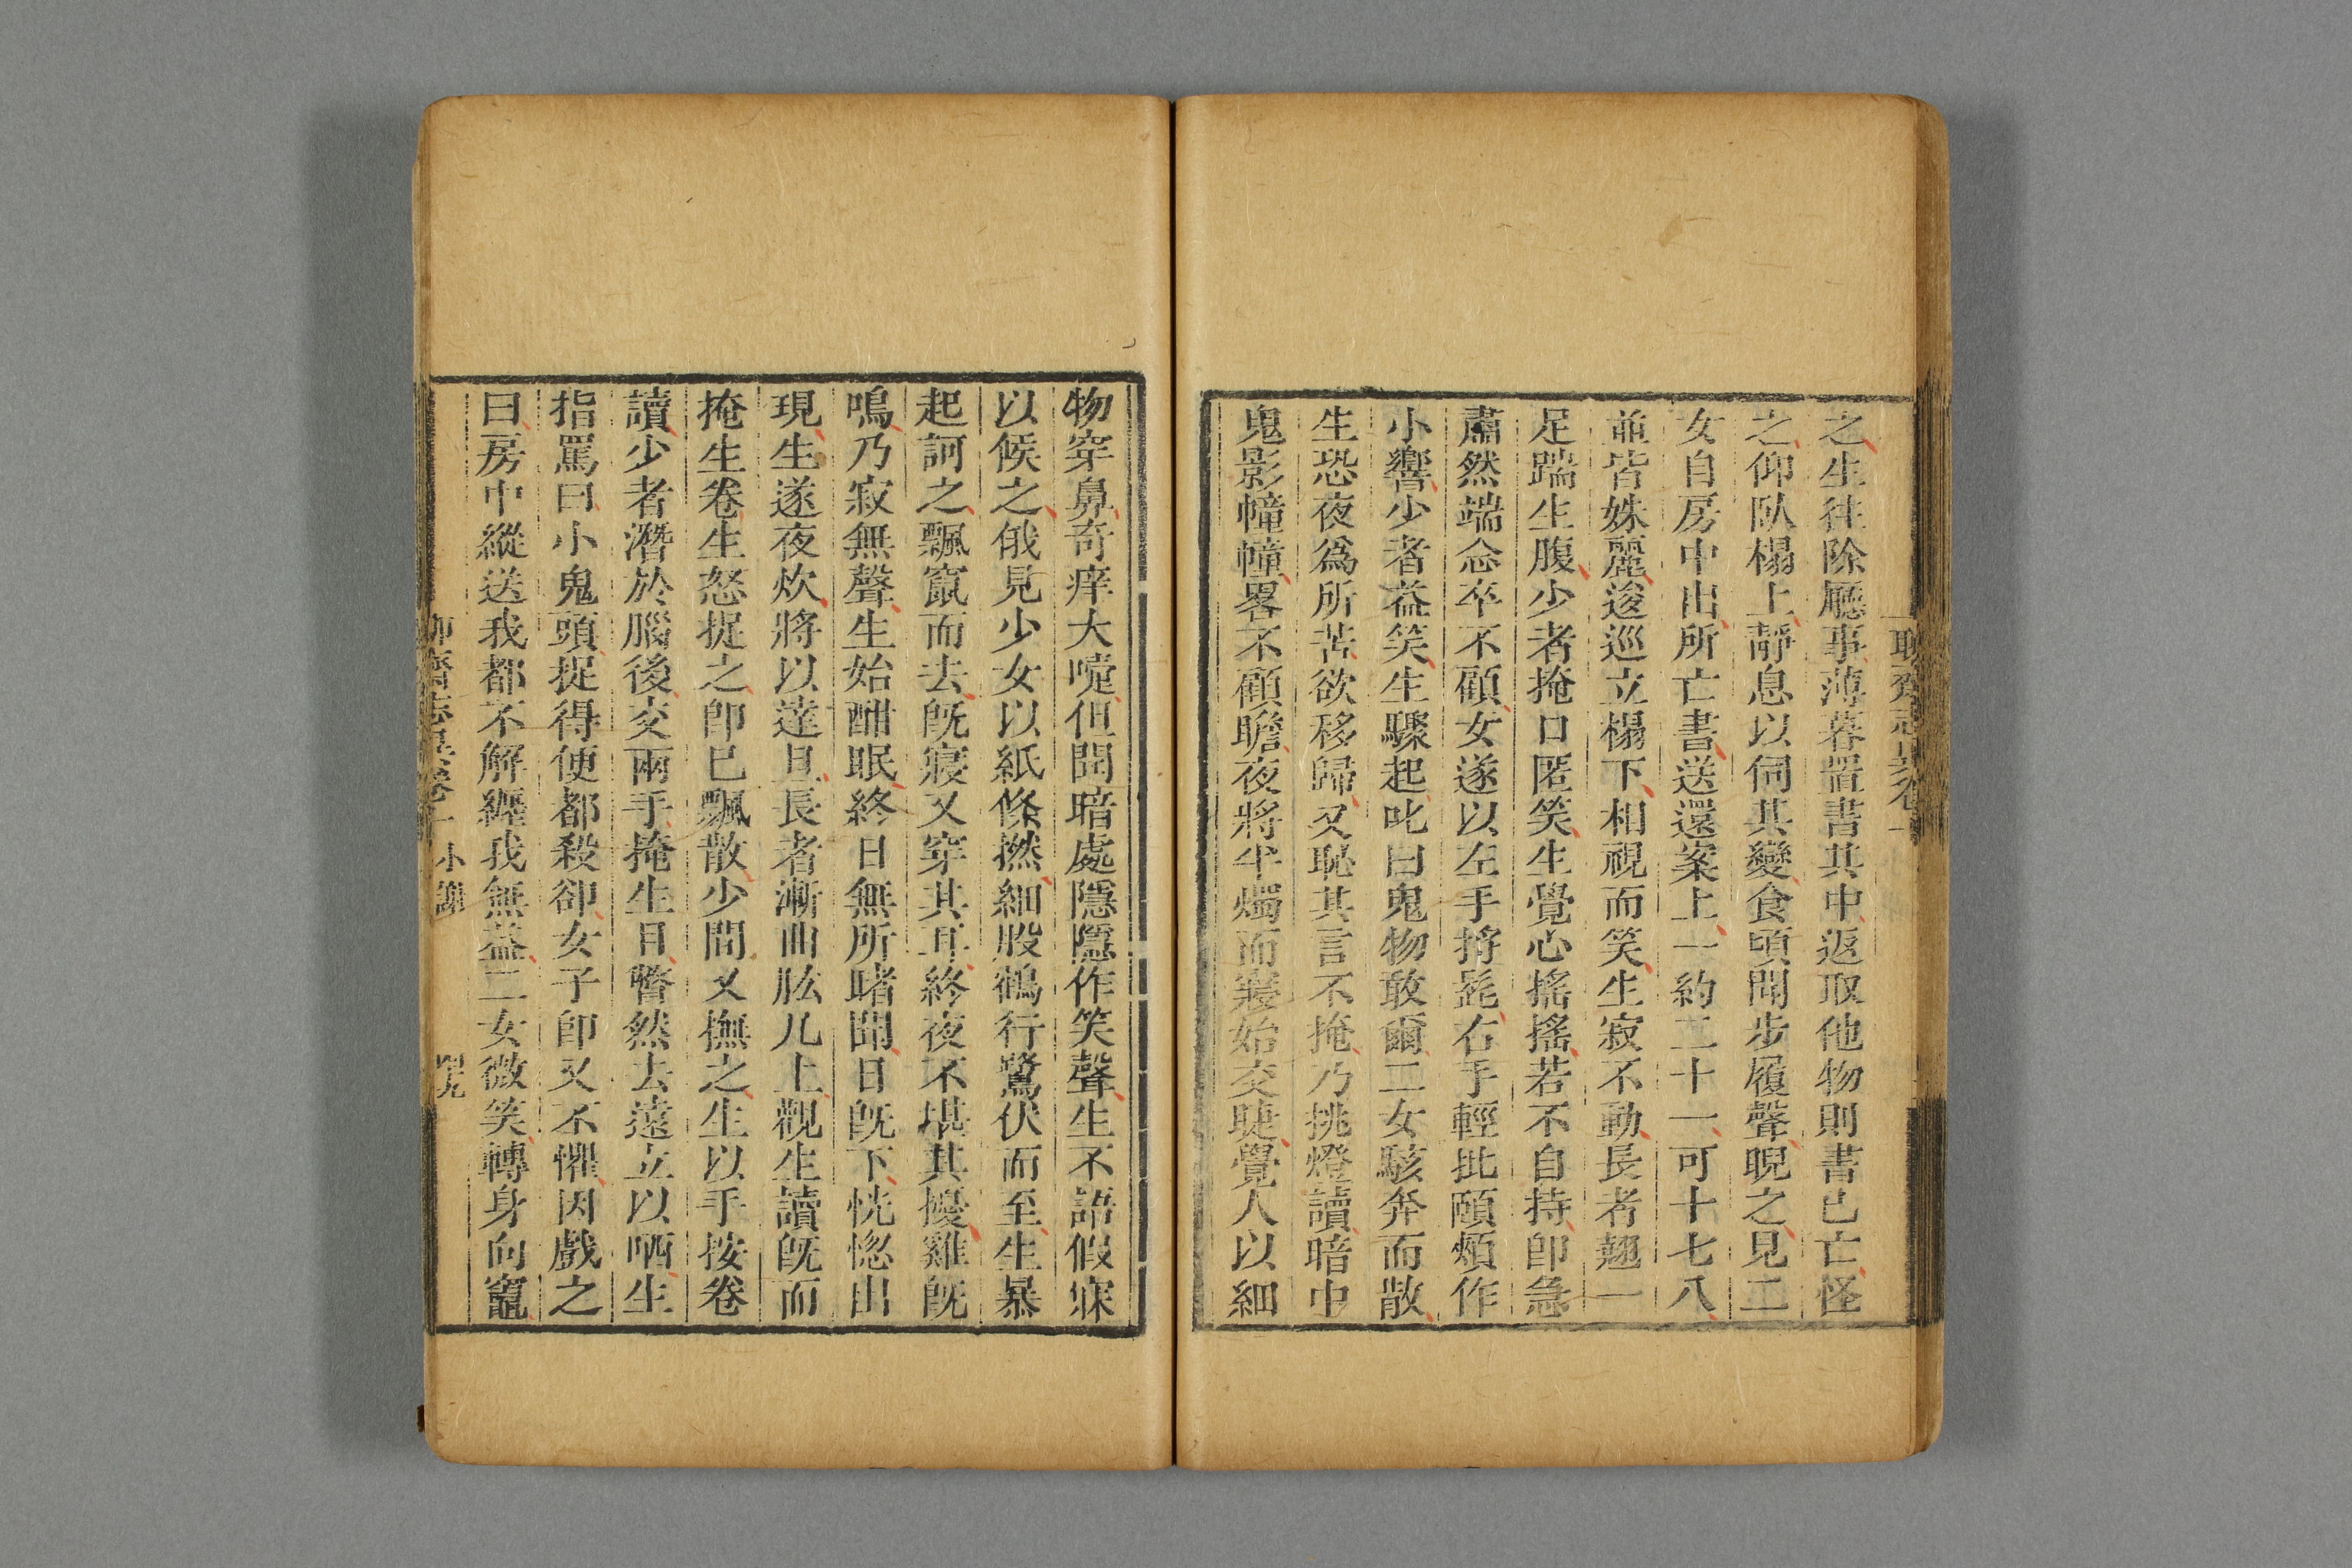 之生往除廳事薄暮置書其中返取他物則書已亡怪
之仰臥榻上靜息以伺其變食頃聞步履聲睨之見二
女自房中出所亡書送還案上一約二十一可十七八
並皆姝麗逡巡立榻下相視而笑生寂不動長者翹一
足踹生腹少者掩口匿笑生覺心搖搖若不自持卽急
肅然端念卒不顧女遂以左手捋髭右手輕批頤頰作
小響少者益笑生驟起叱曰鬼物敢爾二女駭奔而散
生恐夜爲所苦欲移歸又恥其言不掩乃挑燈讀暗中
鬼影幢幢畧不顧瞻夜將半燭而寢始交睫覺人以細
物穿鼻奇痒大嚏但聞暗處隱隱作笑聲生不語假寐
以候之俄見少女以紙條撚細股鶴行鷺伏而至生暴
起訶之飄竄而去旣寢又穿其耳終夜不堪其擾雞旣
鳴乃寂無聲生始酣眠終日無所睹聞日旣下恍惚出
現生遂夜炊將以達旦長者漸曲肱几上觀生讀旣而
掩生卷生怒捉之卽已飄散少間又撫之生以手按卷
讀少者潛於腦後交兩手掩生目瞥然去遠立以哂生
指罵曰小鬼頭捉得便都殺卻女子卽又不懼因戲之
曰房中縱送我都不解纏我無益二女微笑轉身向竈
小謝